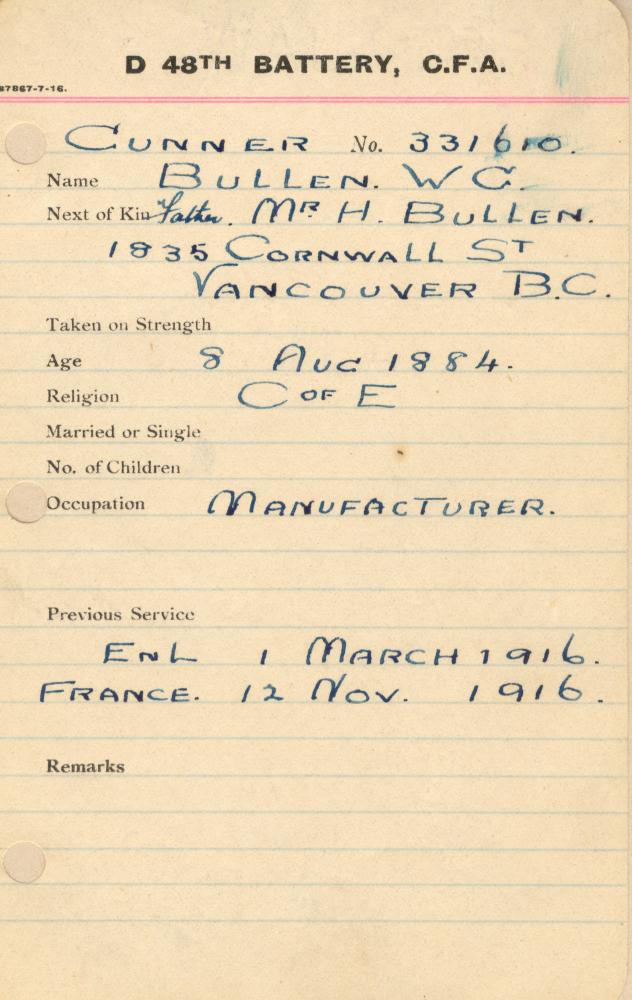 D 48TH BATTERY, C.F.A.
87867-7-16.
GUNNER No. 331610.
Name BULLEN. W G.
Next of Kin Father. MR H. BULLEN.
1835 CORNWALL ST
VANCOUVER B.C.
Taken on Strength
Age 8 AUG 1884.
Religion C OF E
Married or Single
No. of Children
Occupation MANUFACTURER.
Previous Service
ENL 1 MARCH 1916.
FRANCE. 12 NOV. 1916.
Remarks